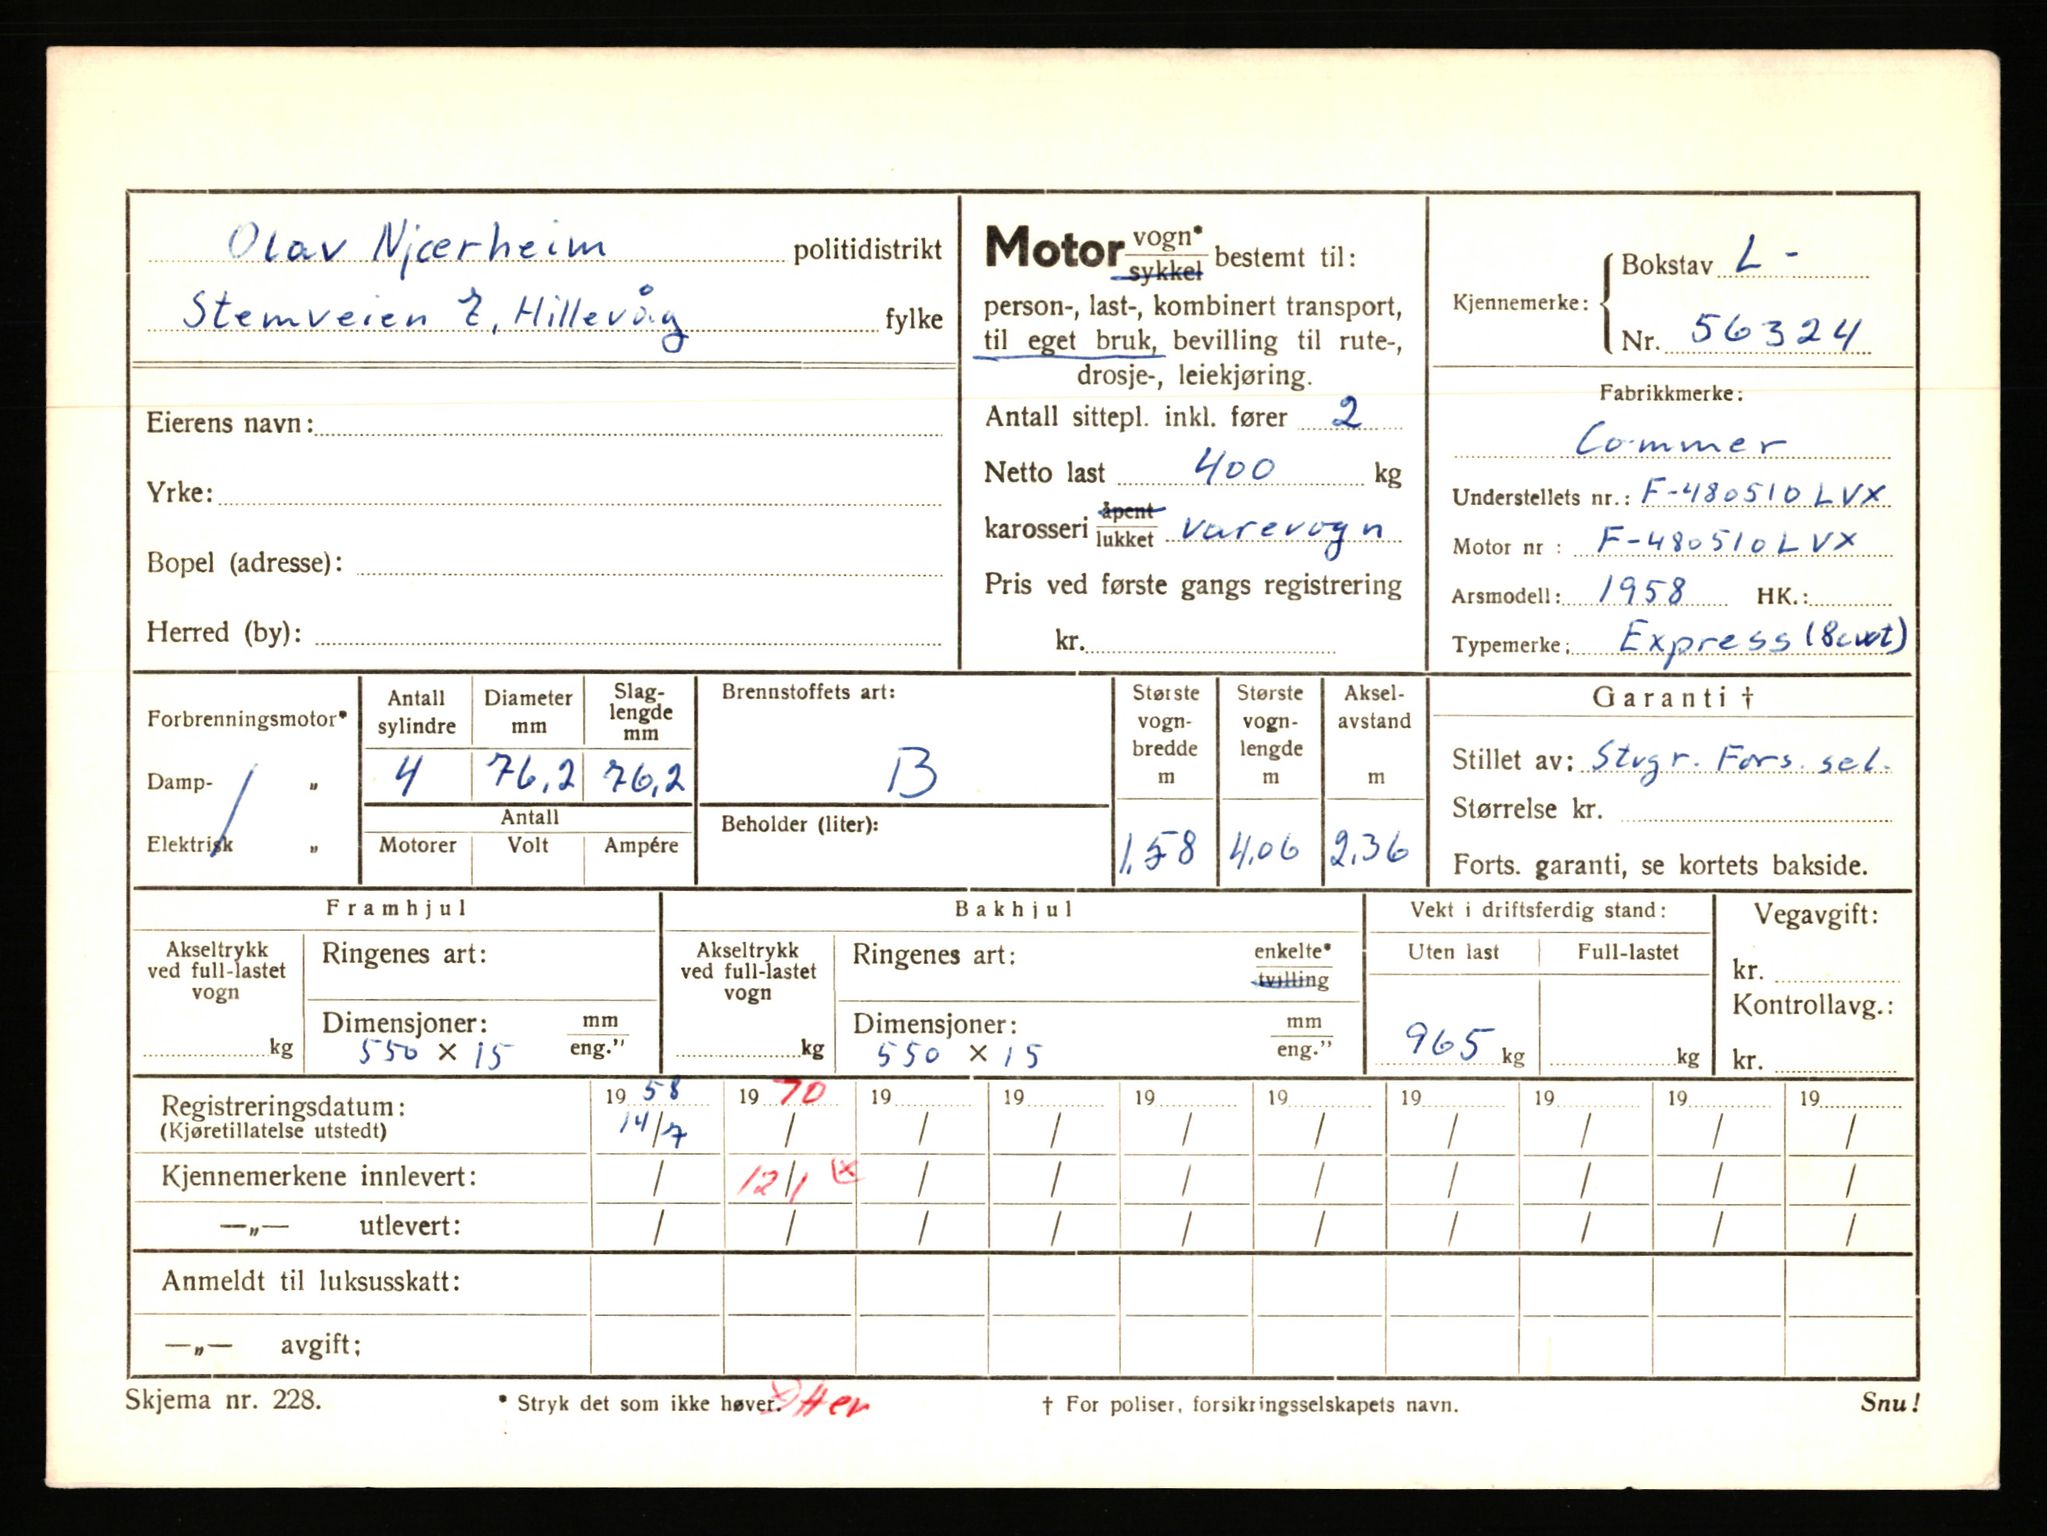 Olav Njærheim politidistrikt
Stemveien 7, Hillevåg fylke
Eierens navn:
Yrke:
Bopel (adresse):
Herred (by):
Motor vogn* / sykkel bestemt til:
person-, last-, kombinert transport,
til eget bruk, bevilling til rute-,
drosje-, leiekjøring.
Antall sittepl. inkl. fører 2
Netto last 400 kg
karosseri åpent / lukket varevogn
Pris ved første gangs registrering
kr.
Kjennemerke: Bokstav L -
Nr. 56324
Fabrikkmerke:
Commer
Understellets nr.: F-480510 LVX
Motor nr : F-480510 LVX
Arsmodell: 1958 HK.:
Typemerke: Express (8cwt)
Forbrenningsmotor*
Damp- „
Elektrisk „
Antall sylindre
Diameter mm
Slag-lengde mm
4 76,2 76,2
Antall
Motorer Volt Ampére
Brennstoffets art:
B
Beholder (liter):
Største vogn-bredde m
1,58
Største vogn-lengde m
4,06
Aksel-avstand m
2,36
Garanti †
Stillet av: Stvgr. Fors. sel.
Størrelse kr.
Forts. garanti, se kortets bakside.
Framhjul
Akseltrykk ved full-lastet vogn
kg
Ringenes art:
Dimensjoner: mm / eng."
550 × 15
Bakhjul
Akseltrykk ved full-lastet vogn
kg
Ringenes art: enkelte* / tvilling
Dimensjoner: mm / eng."
550 × 15
Vekt i driftsferdig stand:
Uten last Full-lastet
965 kg kg
Vegavgift:
kr.
Kontrollavg.:
kr.
Registreringsdatum: 19 58 19 70 19 19 19 19 19 19 19 19
(Kjøretillatelse utstedt) 14/7 / / / / / / / / /
Kjennemerkene innlevert: / 12/1 x / / / / / / / /
—„— utlevert: / / / / / / / / / /
Anmeldt til luksusskatt:
—„— avgift:
Skjema nr. 228.
* Stryk det som ikke høver.
† For poliser, forsikringsselskapets navn.
Snu!